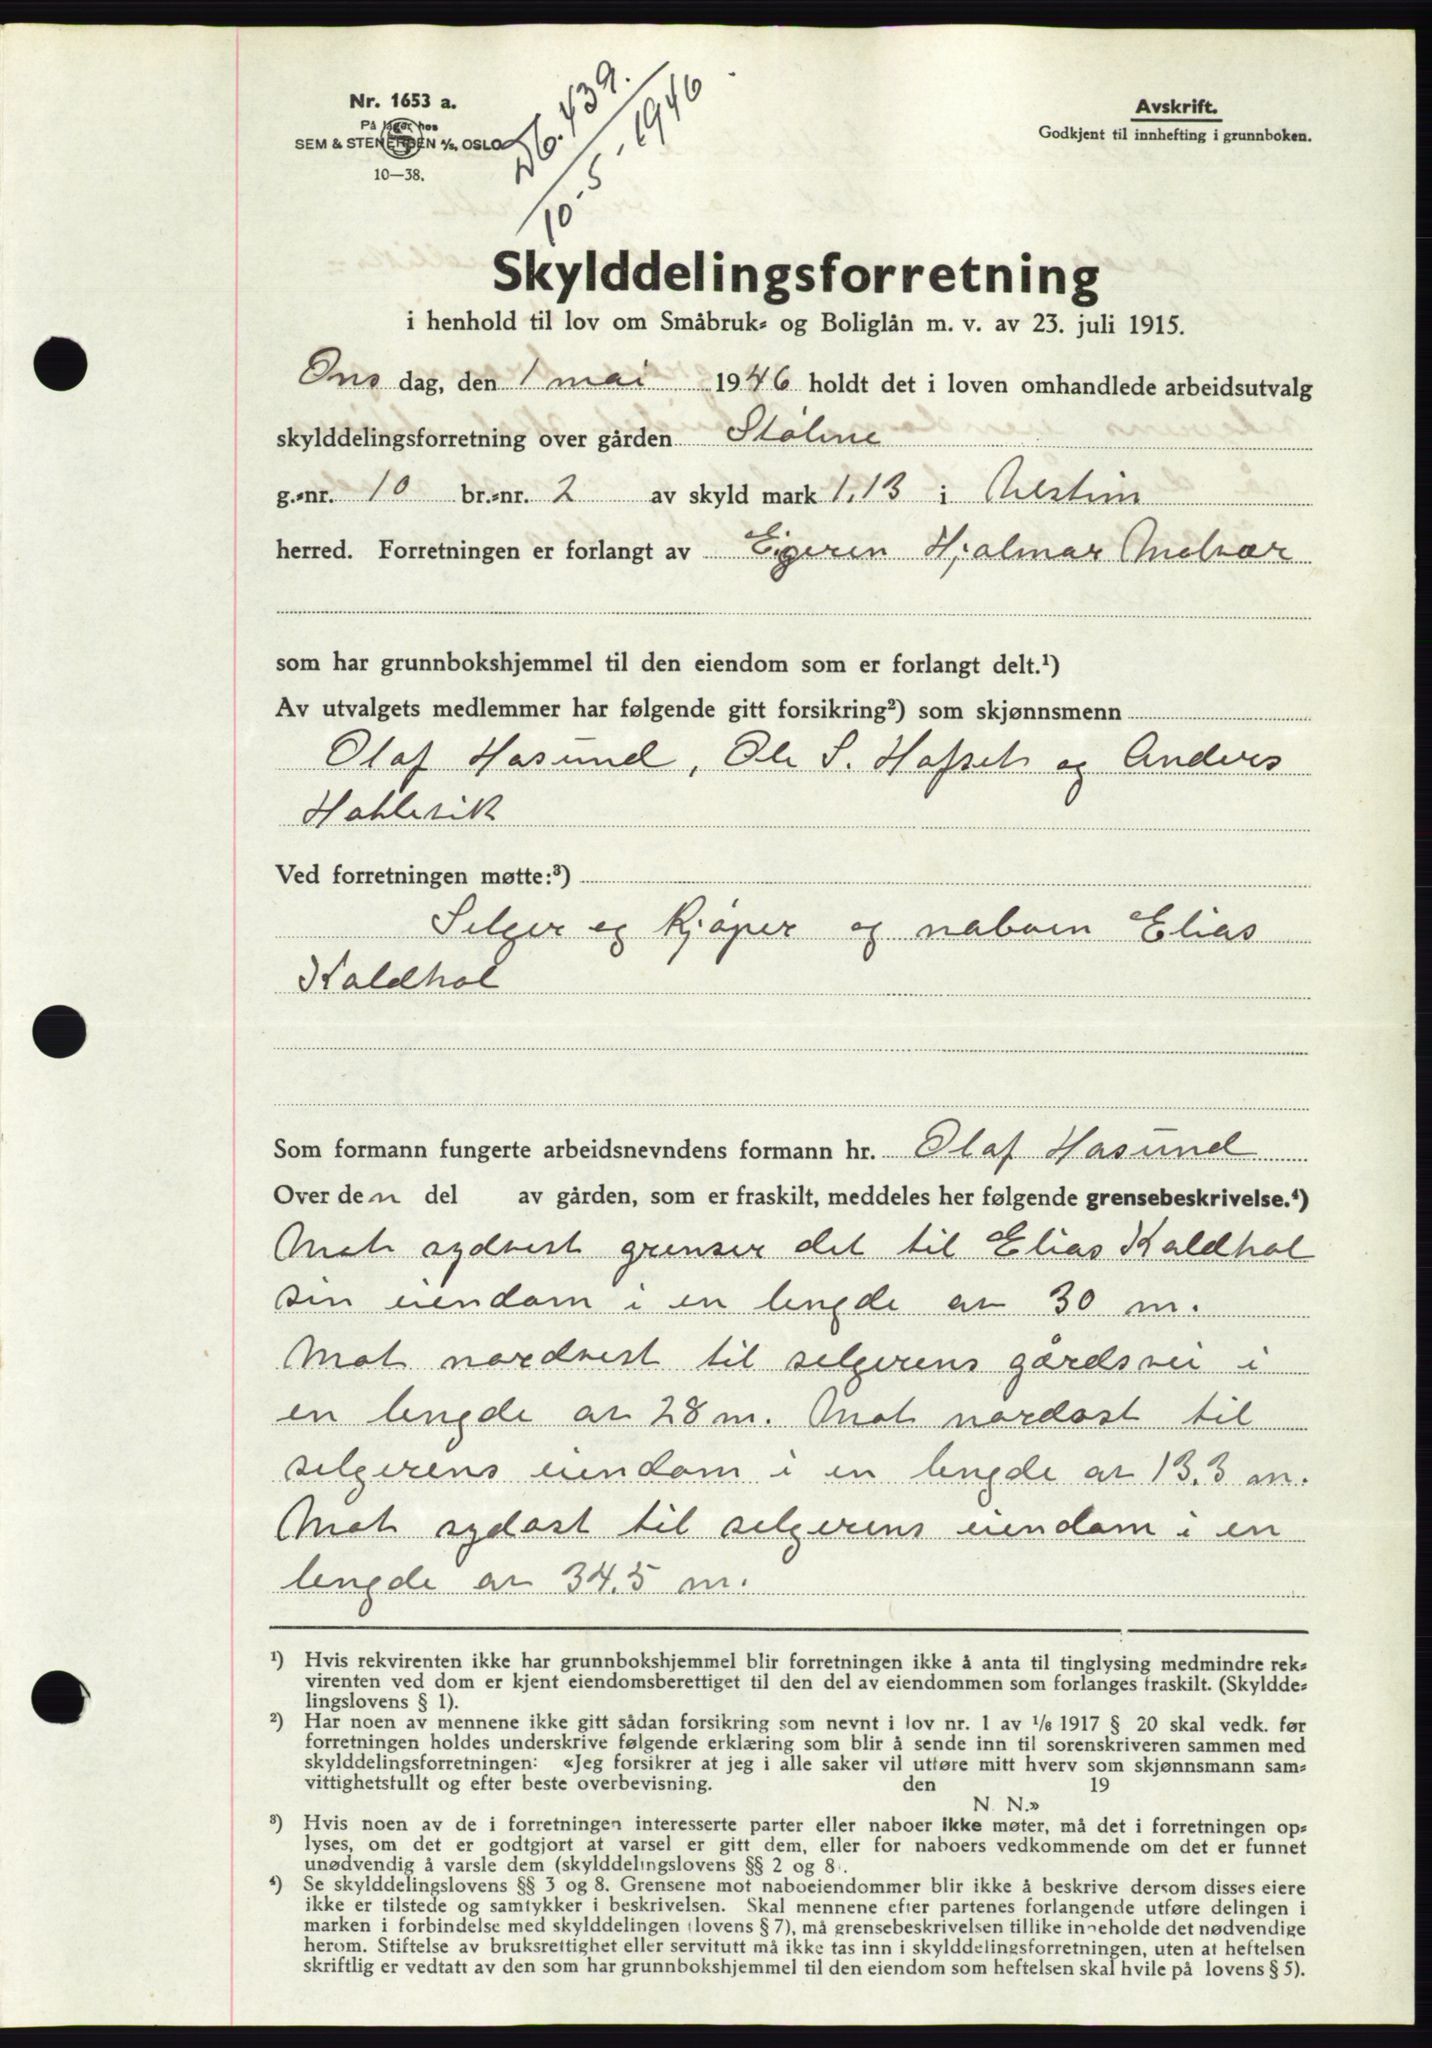 Nr. 1653 a.
På lager hos
SEM & STENERSEN A/S, OSLO
10—38.
Db. 439.
10-5-1946
Avskrift.
Godkjent til innhefting i grunnboken.
Skylddelingsforretning
i henhold til lov om Småbruk- og Boliglån m. v. av 23. juli 1915.
Ons dag, den 1 mai 1946 holdt det i loven omhandlede arbeidsutvalg
skylddelingsforretning over gården Stølne
g.-nr. 10 br.-nr. 2 av skyld mark 1,13 i Ulstein
herred. Forretningen er forlangt av Eigeren Hjalmar Molvær
som har grunnbokshjemmel til den eiendom som er forlangt delt.¹)
Av utvalgets medlemmer har følgende gitt forsikring²) som skjønnsmenn
Olaf Hasund, Ole S. Hofset og Anders
Hatlevik
Ved forretningen møtte:³)
Selger og kjøper og naboen Elias
Kaldhol
Som formann fungerte arbeidsnevndens formann hr. Olaf Hasund
Over den del av gården, som er fraskilt, meddeles her følgende grensebeskrivelse.⁴)
Mot sydvest grenser det til Elias Kaldhol
sin eiendom i en lengde av 30 m.
Mot nordvest til selgerens gårdsvei i
en lengde av 28 m. Mot nordøst til
selgerens eiendom i en lengde av 13.3 m.
Mot sydøst til selgerens eiendom i en
lengde av 34.5 m.
¹) Hvis rekvirenten ikke har grunnbokshjemmel blir forretningen ikke å anta til tinglysing medmindre rek-
virenten ved dom er kjent eiendomsberettiget til den del av eiendommen som forlanges fraskilt. (Skyldde-
lingslovens § 1).
²) Har noen av mennene ikke gitt sådan forsikring som nevnt i lov nr. 1 av 1/6 1917 § 20 skal vedk. før
forretningen holdes underskrive følgende erklæring som blir å sende inn til sorenskriveren sammen med
skylddelingsforretningen: «Jeg forsikrer at jeg i alle saker vil utføre mitt hverv som skjønnsmann sam-
vittighetsfullt og efter beste overbevisning. den 19
N. N.»
³) Hvis noen av de i forretningen interesserte parter eller naboer ikke møter, må det i forretningen op-
lyses, om det er godtgjort at varsel er gitt dem, eller for naboers vedkommende om det er funnet
unødvendig å varsle dem (skylddelingslovens §§ 2 og 8).
⁴) Se skylddelingslovens §§ 3 og 8. Grensene mot naboeiendommer blir ikke å beskrive dersom disses eiere
ikke er tilstede og samtykker i beskrivelsen. Skal mennene efter partenes forlangende utføre delingen i
marken i forbindelse med skylddelingen (lovens § 7), må grensebeskrivelsen tillike inneholde det nødvendige
herom. Stiftelse av bruksrettighet eller servitutt må ikke tas inn i skylddelingsforretningen, uten at heftelsen
skriftlig er vedtatt av den som har grunnbokshjemmel til den eiendom som heftelsen skal hvile på lovens § 5).